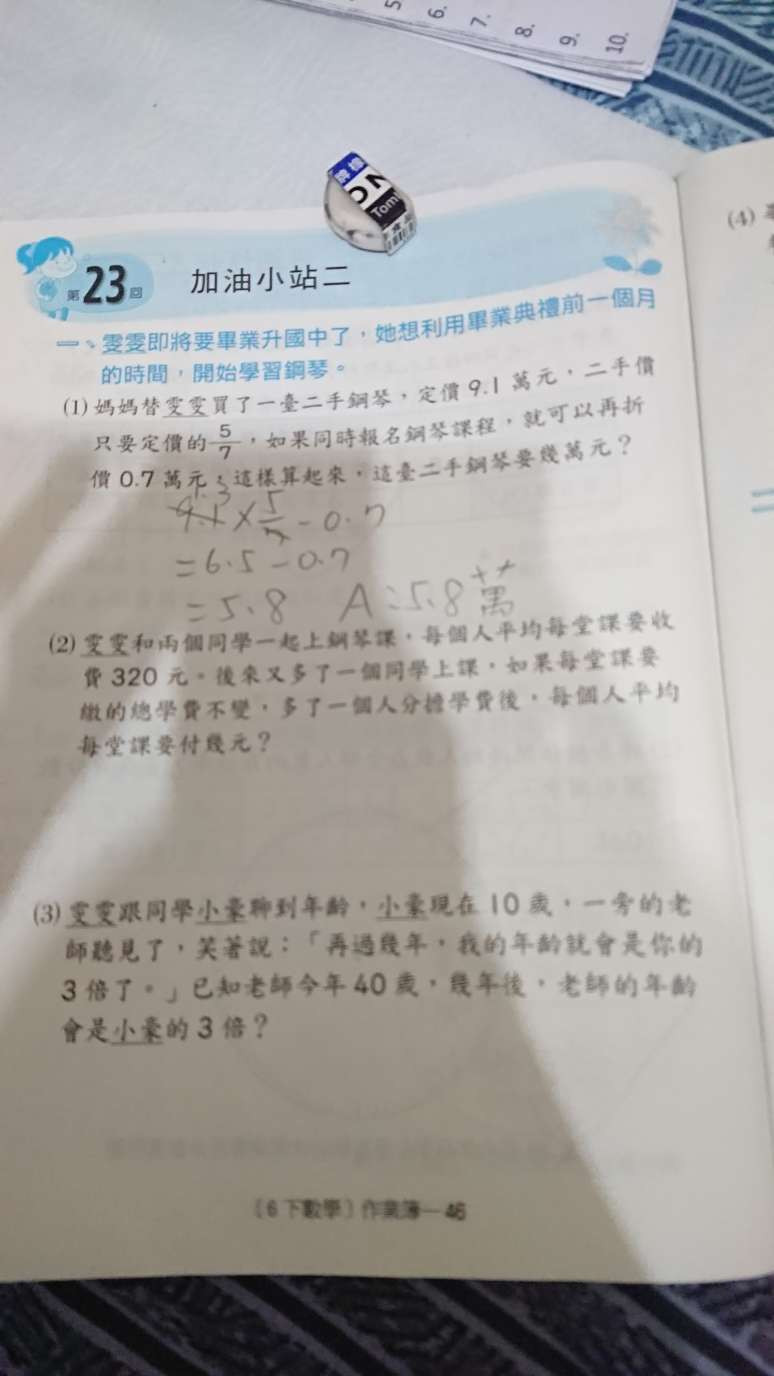 5
6.
7.
8.
9.
10.
牌橡
ON
Tom
(4)
第23回 加油小站二
一、雯雯即將要畢業升國中了，她想利用畢業典禮前一個月
的時間，開始學習鋼琴。
(1) 媽媽替雯雯買了一臺二手鋼琴，定價 9.1 萬元，二手價
只要定價的 5/7，如果同時報名鋼琴課程，就可以再折
價 0.7 萬元，這樣算起來，這臺二手鋼琴要幾萬元？
1.3
9.1 × 5/7 - 0.7
= 6.5 - 0.7
= 5.8 A:5.8萬
(2) 雯雯和兩個同學一起上鋼琴課，每個人平均每堂課要收
費 320 元。後來又多了一個同學上課，如果每堂課要
繳的總學費不變，多了一個人分擔學費後，每個人平均
每堂課要付幾元？
(3) 雯雯跟同學小豪聊到年齡，小豪現在 10 歲，一旁的老
師聽見了，笑著說：「再過幾年，我的年齡就會是你的
3 倍了。」已知老師今年 40 歲，幾年後，老師的年齡
會是小豪的 3 倍？
〔6下數學〕作業簿—46